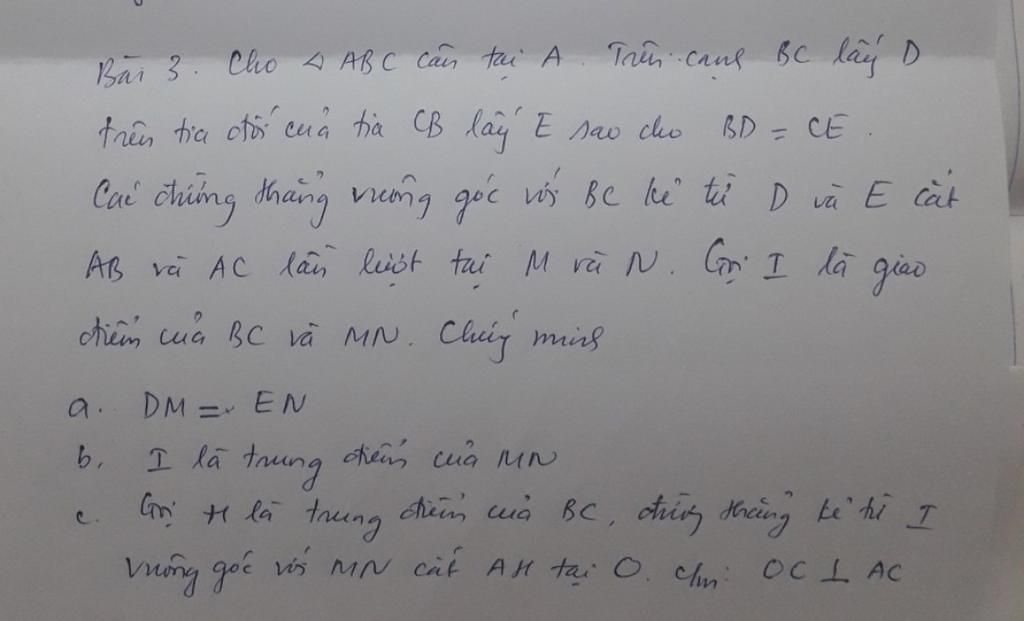 Bài 3. Cho △ ABC cân tại A. Trên cạnh BC lấy D
trên tia đối của tia CB lấy E sao cho BD = CE.
Các đường thẳng vuông góc với BC kẻ từ D và E cắt
AB và AC lần lượt tại M và N. Gọi I là giao
điểm của BC và MN. Chứng minh
a. DM = EN
b. I là trung điểm của MN
c. Gọi H là trung điểm của BC, đường thẳng kẻ từ I
vuông góc với MN cắt AH tại O. c/m: OC ⊥ AC